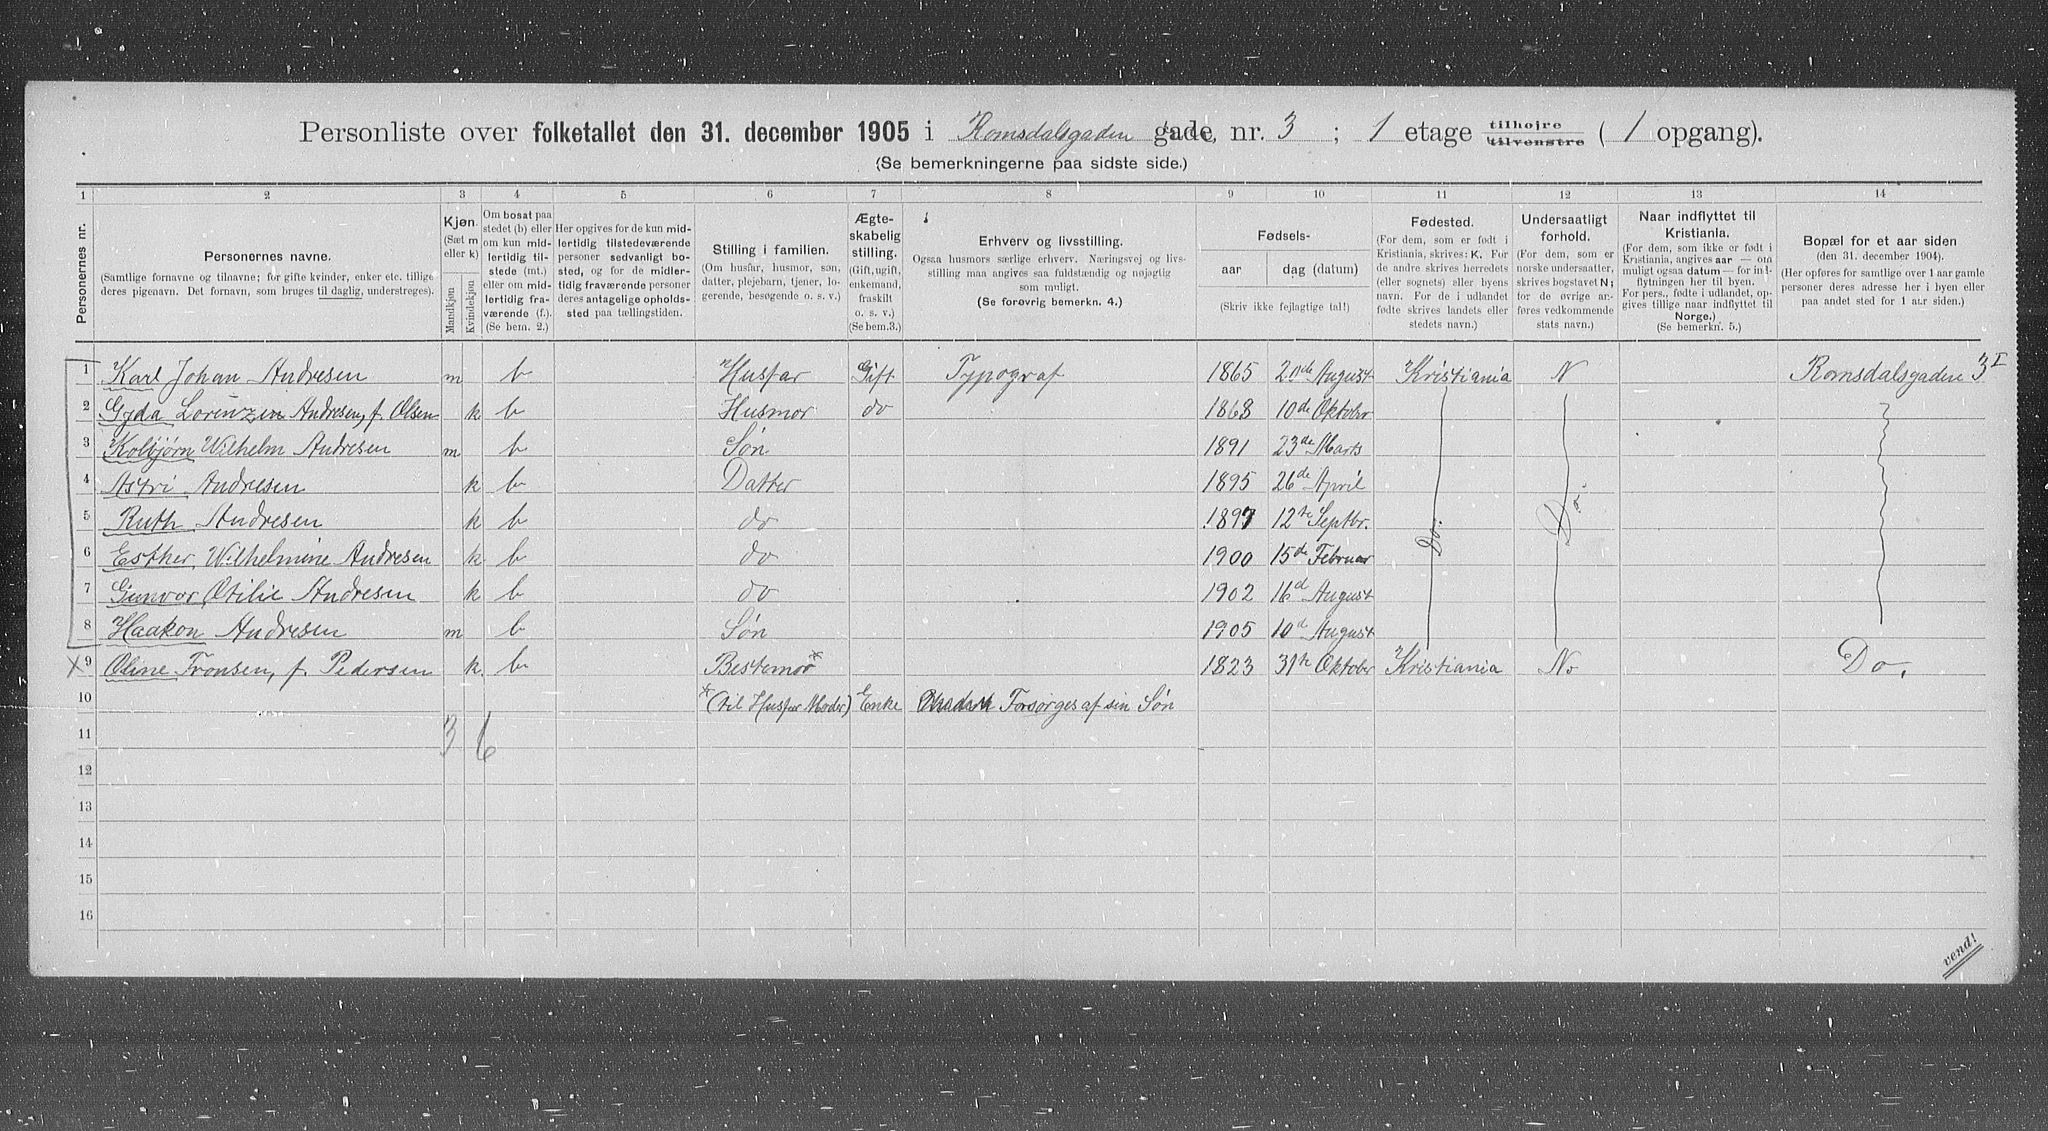 Personliste over folketallet den 31. december 1905 i Romsdalsgaden gade, nr. 3 ; 1 etage tilhøjre tilvenstre ( 1 opgang).
(Se bemerkningerne paa sidste side.)
1 2 3 4 5 6 7 8 9 10 11 12 13 14
Personernes nr.
Personernes navne.
(Samtlige fornavne og tilnavne; for gifte kvinder, enker etc. tillige
deres pigenavn. Det fornavn, som bruges til daglig, understreges).
Kjøn.
(Sæt m
eller k)
Mandkjøn
Kvindekjøn
Om bosat paa
stedet (b) eller
om kun mid-
lertidig tilste-
stede (mt.)
eller om mid-
lertidig fra-
værende (f.).
(Se bem. 2.)
Her opgives for de kun mid-
lertidig tilstedeværende
personer sedvanligt bo-
sted, og for de midler-
tidig fraværende personer
deres antagelige opholds-
sted paa tællingstiden.
Stilling i familien.
(Om husfar, husmor, søn,
datter, plejebarn, tjener, lo-
gerende, besøgende o. s. v.)
Ægte-
skabelig
stilling.
(Gift, ugift,
enkemand,
fraskilt
o. s. v.)
(Se bem.3.)
Erhverv og livsstilling.
Ogsaa husmors særlige erhverv. Næringsvej og livs-
stilling maa angives saa fuldstændig og nøjagtig
som muligt.
(Se forøvrig bemerkn. 4.)
Fødsels-
aar dag (datum)
(Skriv ikke fejlagtige tal!)
Fødested.
(For dem, som er født i
Kristiania, skrives: K. For
de andre skrives herredets
(eller sognets) eller byens
navn. For de i udlandet
fødte skrives landets eller
stedets navn.)
Undersaatligt
forhold.
(For dem, som er
norske undersaatter,
skrives bogstavet N;
for de øvrige an-
føres vedkommende
stats navn.)
Naar indflyttet til
Kristiania.
(For dem, som ikke er født i
Kristiania, angives aar — om
muligt ogsaa datum — for ind-
flytningen her til byen.
For pers., fødte i udlandet, op-
gives tillige naar indflyttet til
Norge.)
(Se bemerkn. 5.)
Bopæl for et aar siden
(den 31. december 1904).
(Her opføres for samtlige over 1 aar gamle
personer deres adresse her i byen eller
paa andet sted for 1 aar siden.)
1 Karl Johan Andresen m b Husfar Gift Typograf 1865 2nde August Kristiania N Romsdalsgaden 3 I
2 Gyda Lorinzen Andresen, f. Olsen k b Husmor do 1868 10de Oktober
3 Kolbjørn Wilhelm Andresen m b Søn 1891 23de Marts
4 Astri Andresen k b Datter 1895 26de April
5 Ruth Andresen k b do 1897 12te Septbr. Do. Do.
6 Esther Wilhelmine Andresen k b do 1900 15de Februar
7 Gunvor Otilie Andresen k b do 1902 16d August
8 Haakon Andresen m b Søn 1905 10d August
X 9 Oline Tronsen, f. Pedersen k. b Bestemor* 1823 31te Oktobr Kristiania No Do.
10 *(til Husfar Moder) Enke Forsørges af sin Søn
11 3 6
12
13
14
15
16
vend!